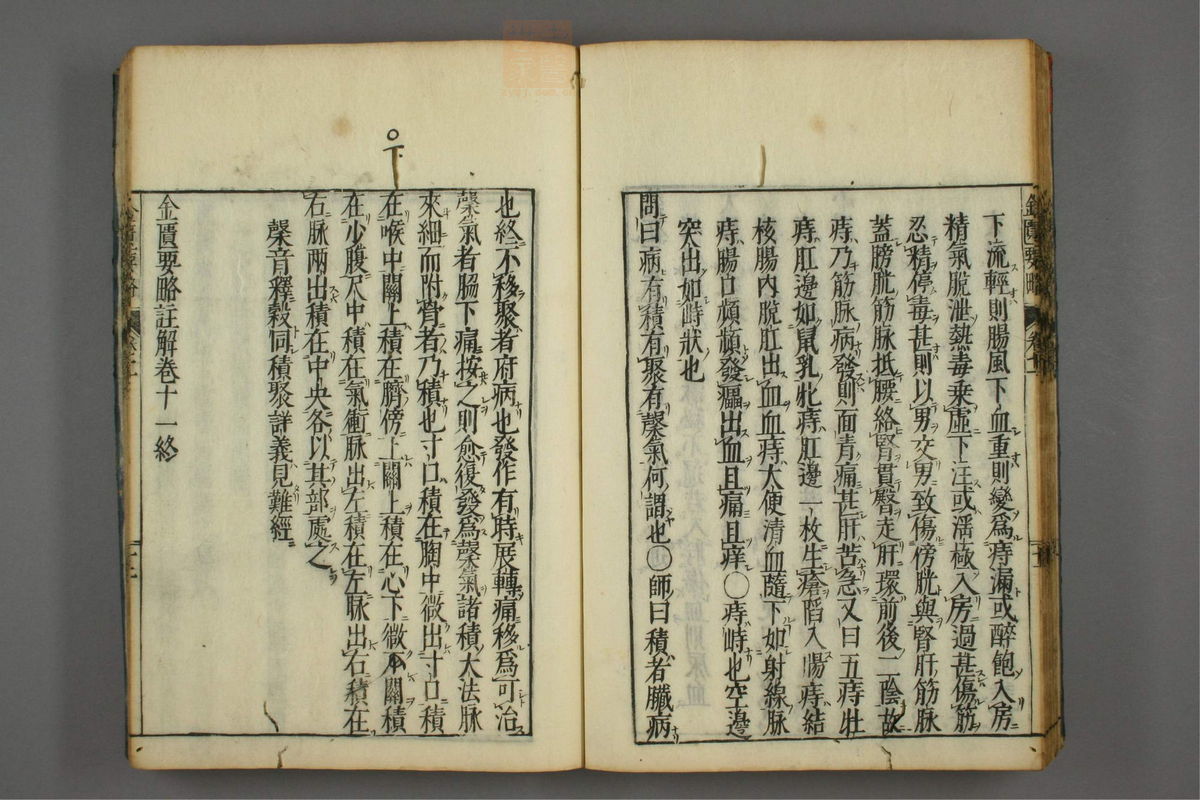 下流輕則腸風下血重則變爲痔漏或醉飽入房
精氣脫泄熱毒乗虛下注或滛極入房過甚傷筋
忍精停毒甚則以男交男致傷膀胱與腎肝筋脉
蓋膀胱筋脉抵腰絡腎貫臀走肝環前後二陰故
痔乃筋脉病發則面青痛甚肝苦急又曰五痔牡
痔肛邊如鼠乳牝痔肛邊一枚生瘡陷入腸痔結
核腸内脫肛出血血痔大便清血隨下如射線脉
痔腸口頻頻發瘟出血且痛且痒〇痔峙也空邊
突出如峙狀也
問曰病有積有聚有䅽氣何謂也〇師曰積者臟病
也終不移聚者府病也發作有時展轉痛移爲可治
䅽氣者脇下痛按之則愈復發爲䅽氣諸積大法脉
來細而附骨者乃積也寸口積在胸中微出寸口積
在喉中關上積在臍傍上關上積在心下微下關積
在少腹尺中積在氣衝脉出左積在左脉出右積在
右脉兩出積在中央各以其部處之
䅽音釋穀同積聚詳義見難經
金匱要略註解卷十一終